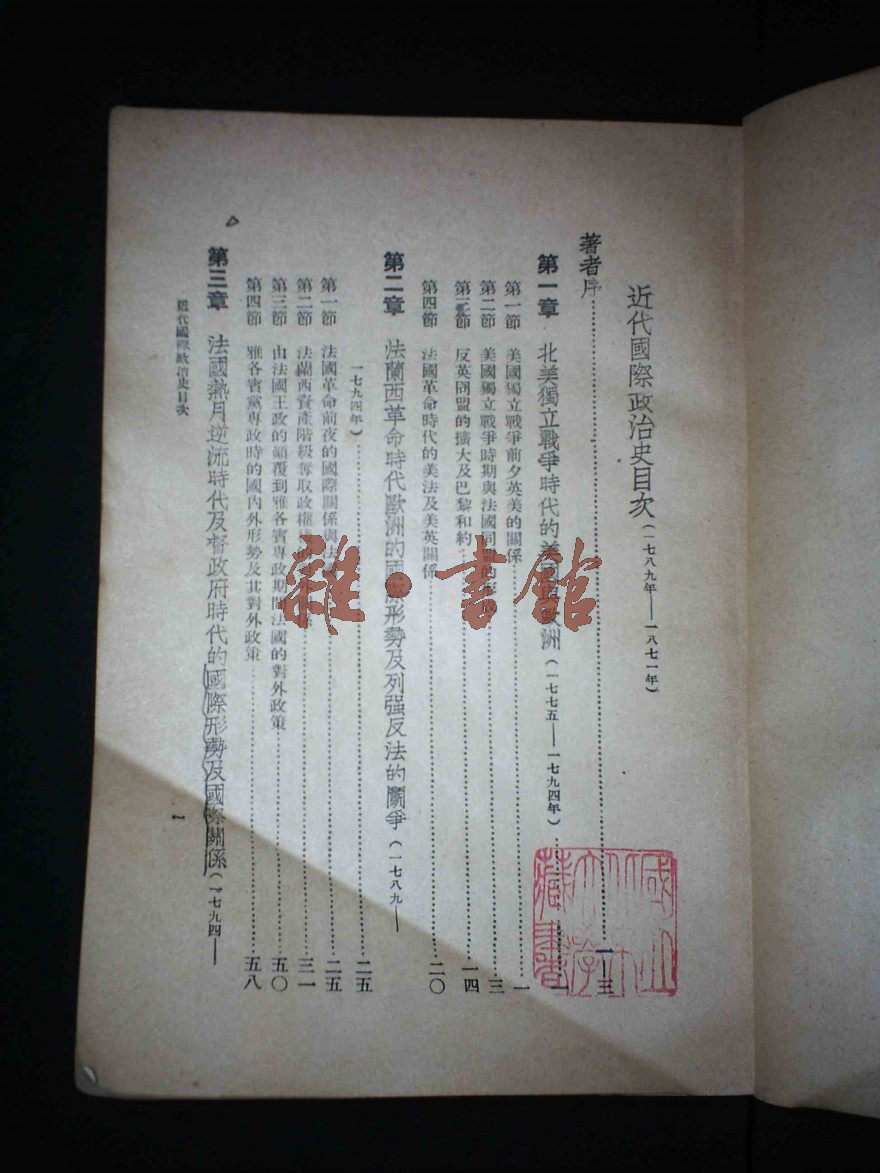 近代國際政治史目次(一七八九年——一八七一年)
著者序 一—三
第一章 北美獨立戰爭時代的美國與歐洲(一七七五——一七九四年) 一
第一節 美國獨立戰爭前夕英美的關係 一
第二節 美國獨立戰爭時期與法國同盟的 三
第三節 反英同盟的擴大及巴黎和約 一四
第四節 法國革命時代的美法及美英關係 二〇
第二章 法蘭西革命時代歐洲的國際形勢及列强反法的鬭爭(一七八九——
一七九四年) 二五
第一節 法國革命前夜的國際關係與法國 二五
第二節 法蘭西資產階級奪取政權 三一
第三節 由法國王政的顛覆到雅各賓專政期間法國的對外政策 五〇
第四節 雅各賓黨専政時的國內外形勢及其對外政策 五八
第三章 法國熱月逆流時代及督政府時代的國際形勢及國際關係(一七九四——
近代國際政治史目次
一
雜·書館